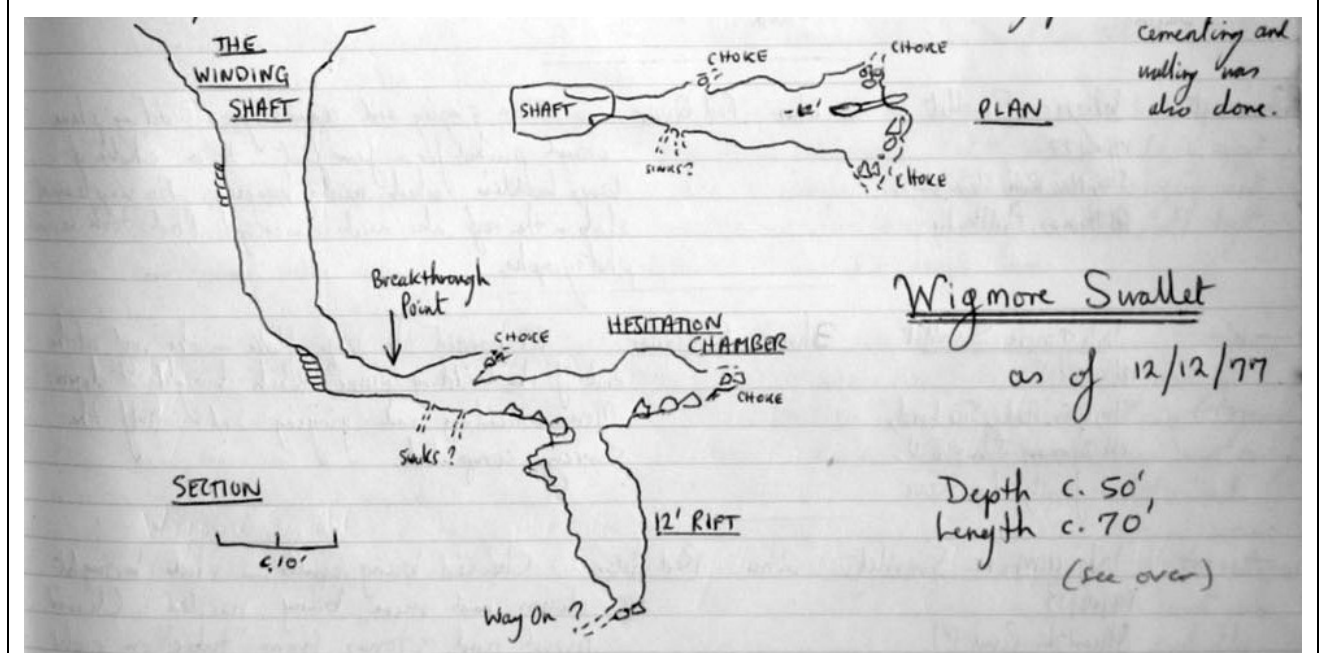 THE
WINDING
SHAFT
CHOKE
CHOKE
SHAFT
12'
PLAN
SINKS?
CHOKE
cementing and
walling was
also done.
Breakthrough
Point
CHOKE
HESITATION
CHAMBER
CHOKE
Sinks?
SECTION
c.10'
12' RIFT
Way On?
Wigmore Swallet
as of 12/12/77
Depth c. 50',
Length c. 70'
(see over)